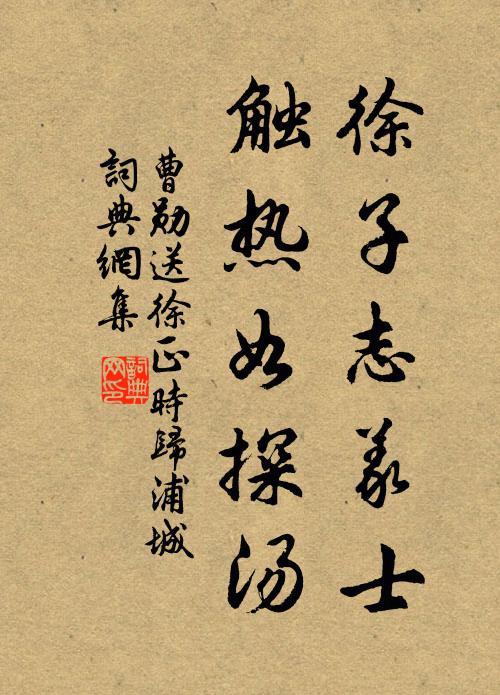 徐子志义士
触热如探汤
曹勋送徐正時歸浦城
詞典網集
詞典网印